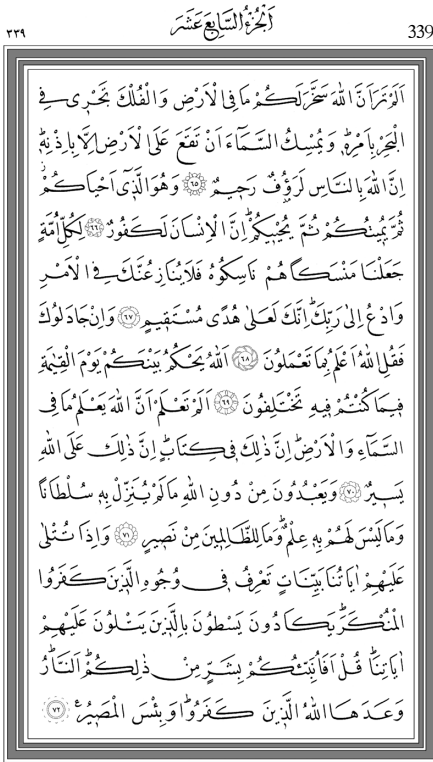 ٣٣٩ اَلْجُزْءُ السَّابِعَ عَشَرَ 339
اَلَمْ تَرَ اَنَّ اللّٰهَ سَخَّرَ لَكُمْ مَا فِى الْاَرْضِ وَالْفُلْكَ تَجْرٖى فِى
الْبَحْرِ بِاَمْرِهٖۜ وَيُمْسِكُ السَّمَٓاءَ اَنْ تَقَعَ عَلَى الْاَرْضِ اِلَّا بِاِذْنِهٖۜ
اِنَّ اللّٰهَ بِالنَّاسِ لَرَؤُ۫فٌ رَحٖيمٌ ﴿٦٥﴾ وَهُوَ الَّـذٖٓى اَحْيَاكُمْۘ
ثُمَّ يُمٖيتُكُمْ ثُمَّ يُحْيٖيكُمْۜ اِنَّ الْاِنْسَانَ لَكَفُورٌ ﴿٦٦﴾ لِكُلِّ اُمَّةٍ
جَعَلْنَا مَنْسَكًا هُمْ نَاسِكُوهُ فَلَا يُنَازِعُنَّكَ فِى الْاَمْرِ
وَادْعُ اِلٰى رَبِّكَۜ اِنَّكَ لَعَلٰى هُدًى مُسْتَقٖيمٍ ﴿٦٧﴾ وَاِنْ جَادَلُوكَ
فَقُلِ اللّٰهُ اَعْلَمُ بِمَا تَعْمَلُونَ ﴿٦٨﴾ اَللّٰهُ يَحْكُمُ بَيْنَكُمْ يَوْمَ الْقِيٰمَةِ
فٖيمَا كُنْتُمْ فٖيهِ تَخْتَلِفُونَ ﴿٦٩﴾ اَلَمْ تَعْلَمْ اَنَّ اللّٰهَ يَعْلَمُ مَا فِى
السَّمَٓاءِ وَالْاَرْضِۜ اِنَّ ذٰلِكَ فٖى كِتَابٍۜ اِنَّ ذٰلِكَ عَلَى اللّٰهِ
يَسٖيرٌ ﴿٧٠﴾ وَيَعْبُدُونَ مِنْ دُونِ اللّٰهِ مَا لَمْ يُنَزِّلْ بِهٖ سُلْطَانًا
وَمَا لَيْسَ لَهُمْ بِهٖ عِلْمٌۜ وَمَا لِلظَّالِمٖينَ مِنْ نَصٖيرٍ ﴿٧١﴾ وَاِذَا تُتْلٰى
عَلَيْهِمْ اٰيَاتُنَا بَيِّنَاتٍ تَعْرِفُ فٖى وُجُوهِ الَّذٖينَ كَفَرُوا
الْمُنْكَرَۜ يَكَادُونَ يَسْطُونَ بِالَّذٖينَ يَتْلُونَ عَلَيْهِمْ
اٰيَاتِنَاۜ قُلْ اَفَاُنَبِّئُكُمْ بِشَرٍّ مِنْ ذٰلِكُمْۜ اَلنَّارُۜ
وَعَدَهَا اللّٰهُ الَّذٖينَ كَفَرُواۜ وَبِئْسَ الْمَصٖيرُ۟ ﴿٧٢﴾